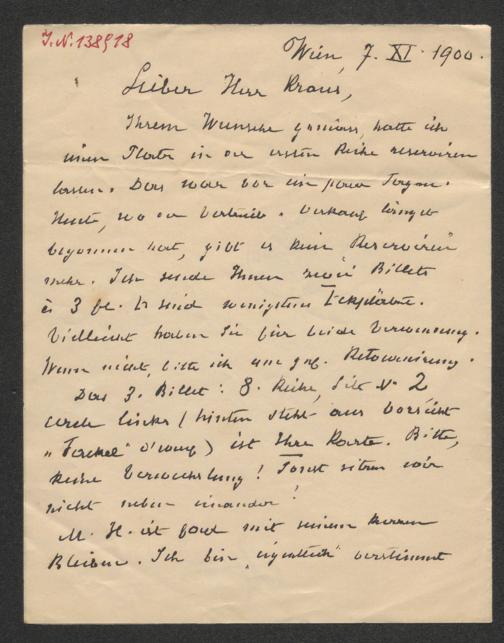 I.N. 138918
Wien, 7. XI. 1900.
Lieber Herr Kraus,
Ihrem Wunsche gemäss, hatte ich
einen Platz in der ersten Reihe reserviren
lassen. Das war vor ein paar Tagen.
Heute, wo der Verkauf längst
begonnen hat, gibt es kein Reserviren
mehr. Ich sende Ihnen zwei Billets
à 3 fl. Es sind wenigstens Eckplätze.
Vielleicht haben Sie für beide Verwendung.
Wenn nicht, bitte ich um gef. Retournirung.
Das 3. Billet: 8. Reihe, Sitz No 2
Cercle links (hinten steht aus Vorsicht
"Fackel" drauf) ist Ihre Karte. Bitte,
keine Verwechslung! Sonst sitzen wir
nicht neben einander!
M. H. ist
mit seinem
Bleiben. Ich bin "eigentlich" verstimmt